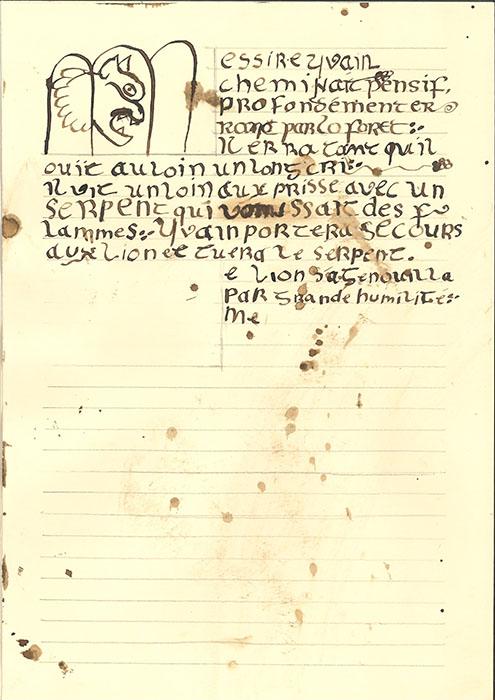 essire yvain
cheminait pensif,
profondement er
rant par lo foret:.
Il erra tant quil
ouit au loin un long cri:.
Il vit un loin aux prisse avec un
serpent qui vomissait des f
lammes:. Yvain portera secours
aux lion et tuera le serpent.
e lion sagenouilla
par grande humilite:.
Me